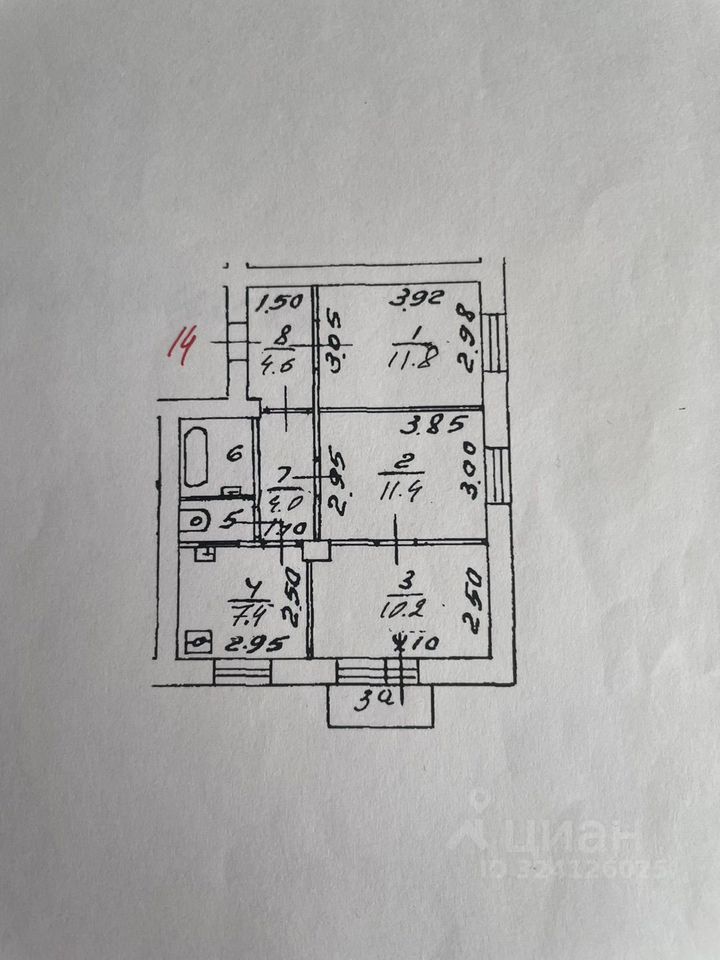 1.50
3.92
14
8
4.6
3.05
1
11.8
2.98
3.85
6
7
4.0
2.95
2
11.4
3.00
5
1.40
4
7.4
2.50
2.95
3
10.2
2.50
4.10
3а
циан
ID 324126025